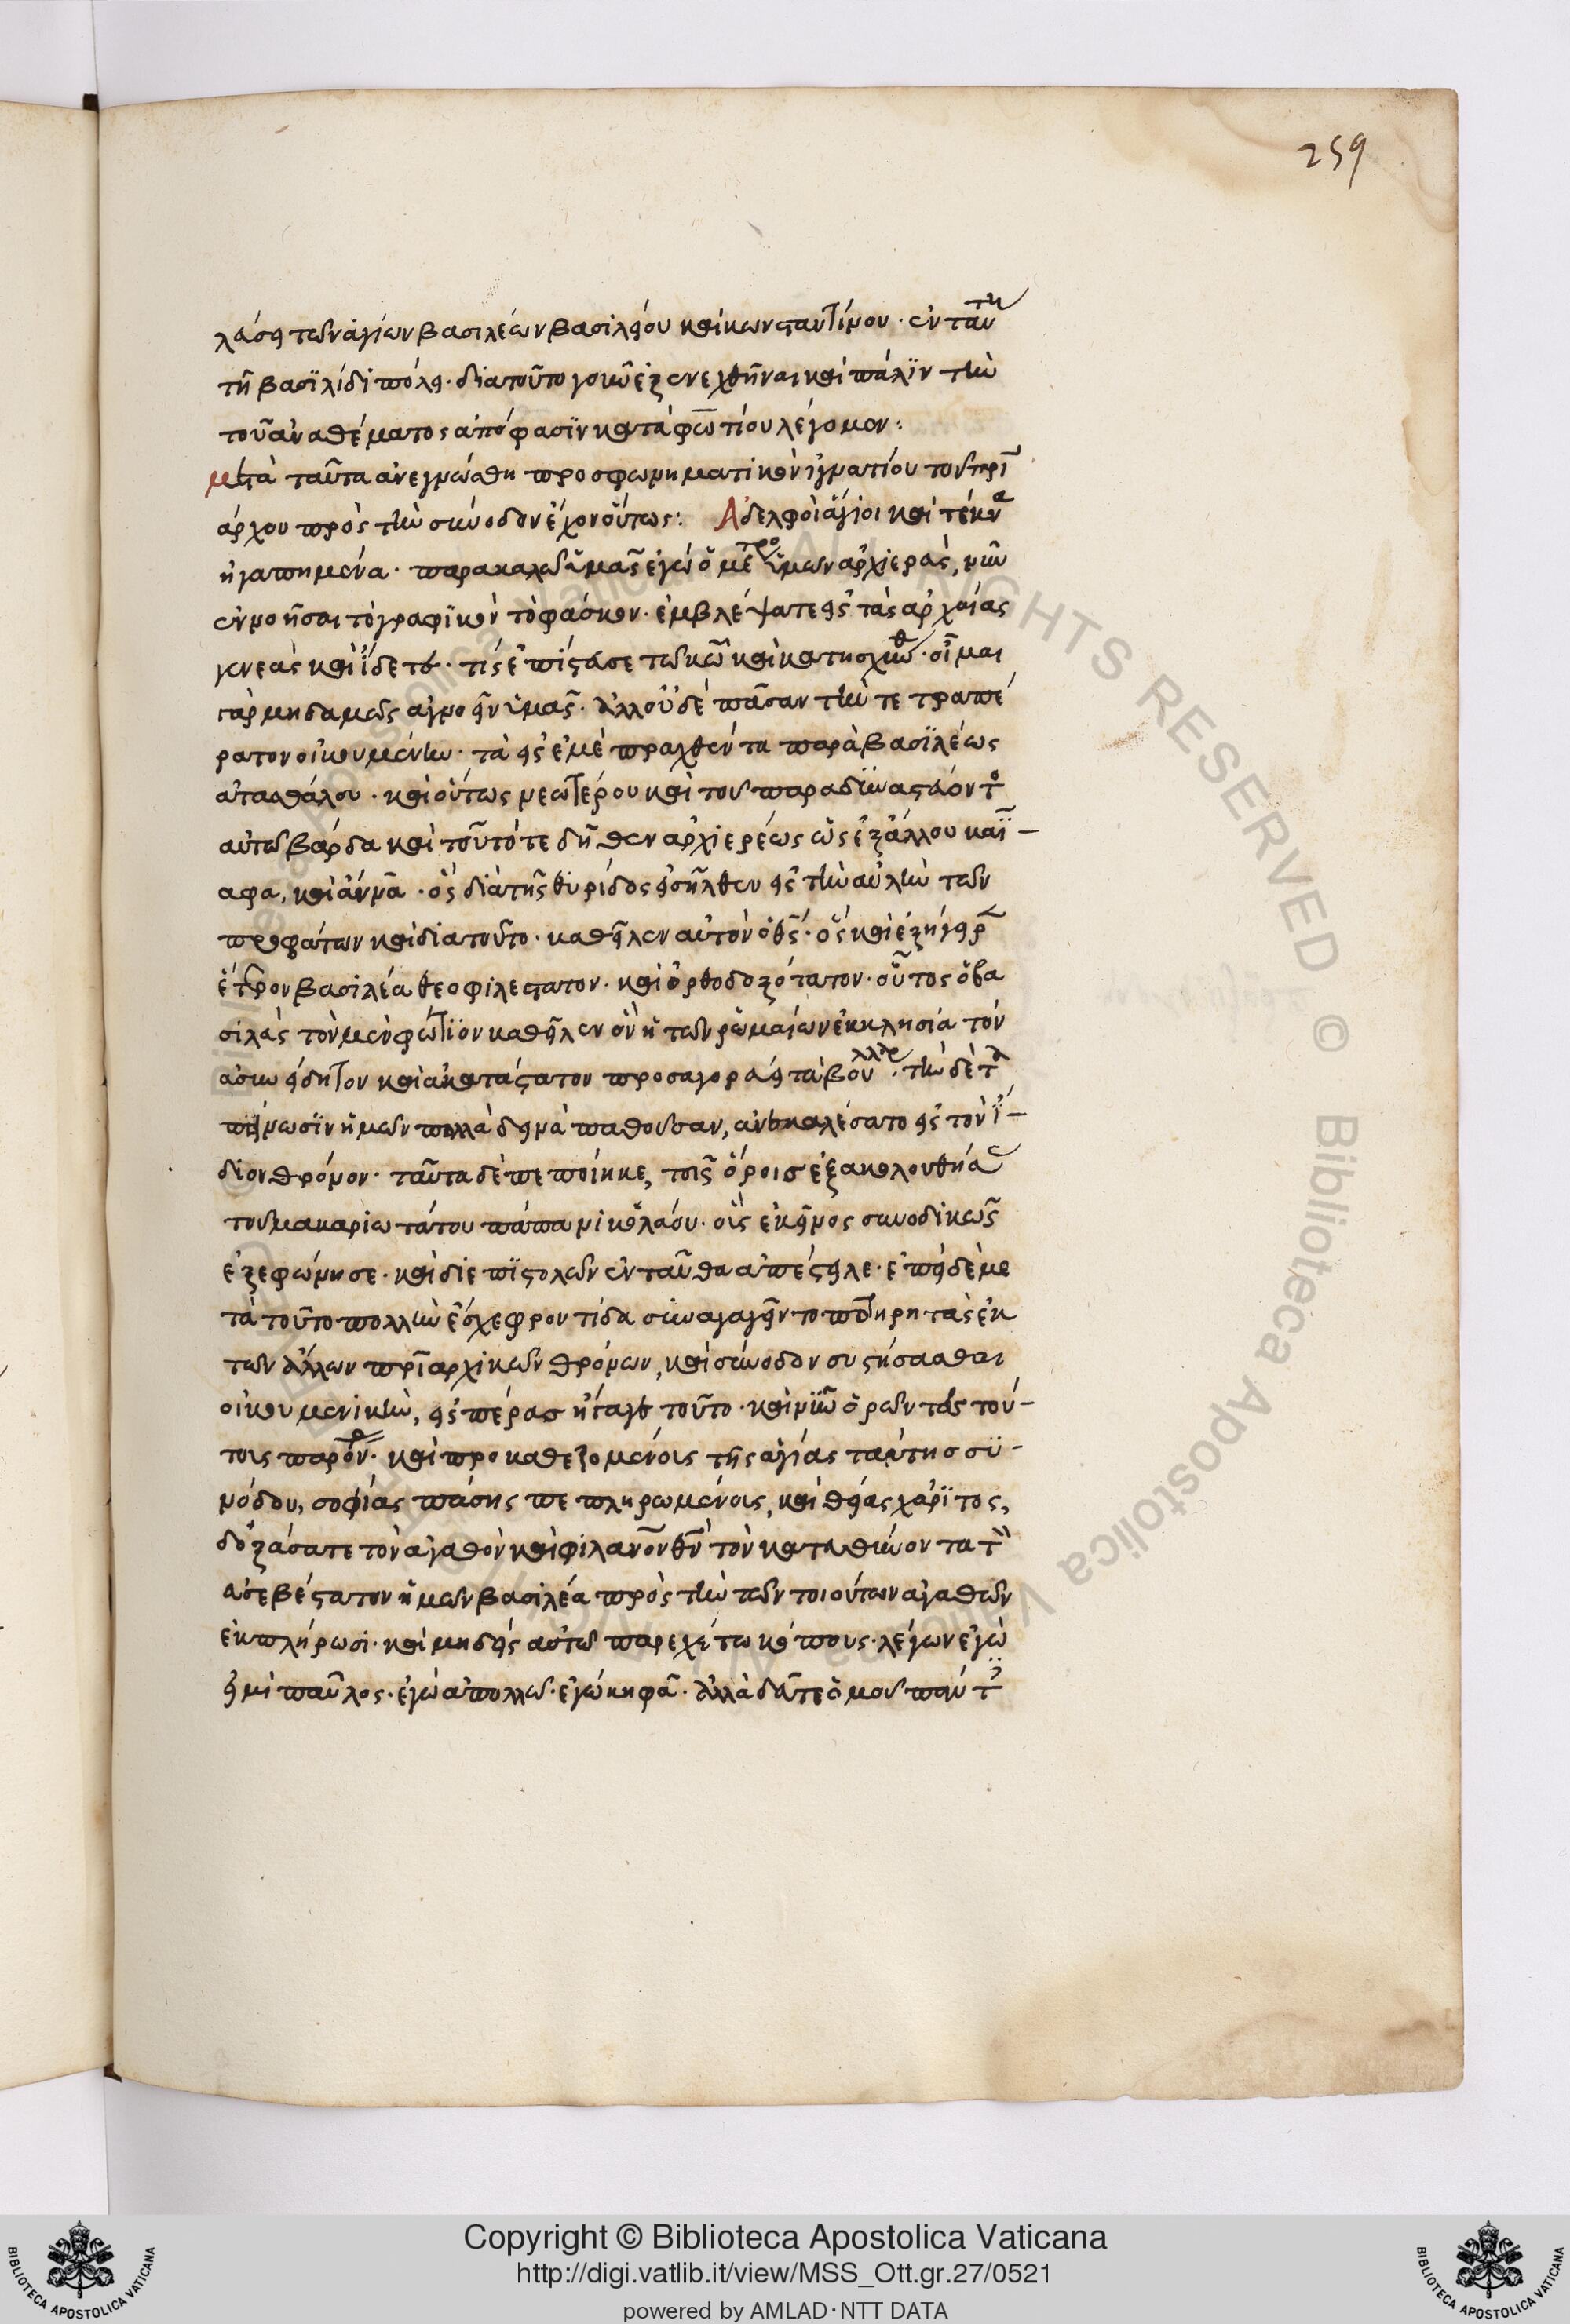 259
λεύσει τῶν ἁγίων βασιλέων βασιλείου καὶ κωνσταντίνου · ἐν ταύτη
τῆ βασιλίδι πόλει · διατοῦτο γοῦν ἐξενεχθῆναι καὶ πάλιν τὴν
τοῦ ἀναθέματος ἀπόφασιν κατὰ φωτίου λέγομεν :
Μετὰ ταῦτα ἀνεγνώσθη προσφωνηματικὸν ἰγνατίου τοῦ πρι
άρχου πρὸς τὴν σύνοδον ἔχον οὕτως : Ἀδελφοὶ ἅγιοι καὶ τέκνα
ἠγαπημένα · παρακαλῶ ὑμᾶς ἐγὼ ὁ μέτρο ὑμῶν ἀρχιερεὺς, νῦν
ἐννοῆσαι τὸ γραφικὸν τὸ φάσκον · ἐμβλέψατε εἰς τὰς ἀρχαίας
γενεὰς καὶ ἴδετε · τίς ἐπίστευσε τῶ κῶ καὶ κατησχύνθη · οἶμαι
γὰρ μηδαμῶς ἀγνοεῖν ὑμᾶς · ἀλλ οὐδὲ πᾶσαν τὴν τετραπέ
ρατον οἰκουμένην · τὰ εἰς ἐμὲ πραχθέντα παρὰ βασιλέως
ἀτασθάλου · καὶ οὕτως νεωτέρου καὶ τοῦ παραδυναστεύοντος
αὐτῶ βάρδα καὶ τοῦ τότε δῆθεν ἀρχιερέως ὡς ἐξ ἄλλου καϊ-
άφα, καὶ ἄννα · ὃς διὰ τῆς θυρίδος εἰσῆλθεν εἰς τὴν αὐλὴν τῶν
προβάτων καὶ διατοῦτο · καθεῖλεν αὐτὸν ὁ θς · ὃς καὶ ἐξήγειρε
ἕτερον βασιλέα θεοφιλέστατον · καὶ ὀρθοδοξότατον · οὗτος ὁ βα
σιλεὺς τὸν μὲν φώτιον καθεῖλεν ὃν ἡ τῶν ῥωμαίων ἐκκλησία τὸν
ἀσυνείδητον καὶ ἀκατάστατον προσαγορεύει τὰ βου · τὴν δὲ τα
πείνωσιν ἡμῶν πολλὰ δεινὰ παθοῦσαν, ἀνεκαλέσατο εἰς τὸν ἴ-
διον θρόνον · ταῦτα δὲ πεποίηκε, τοῖς ὅροις ἐξακολουθήσας
τοῦ μακαριωτάτου πάπα νικολάου · οὓς ἐκεῖνος συνοδικῶς
ἐξεφώνησε · καὶ δι ἐπιστολῶν ἐνταῦθα ἀπέστειλε · ἐπεὶ δὲ με
τὰ τοῦτο πολλὴν ἔσχε φροντίδα συναγαγεῖν τοποτηρητὰς ἐκ
τῶν ἄλλων πριαρχικῶν θρόνων, καὶ σύνοδον συστήσασθαι
οἰκουμενικὴν, εἰς πέρας ἤγαγε τοῦτο · καὶ νῦν ὁρῶντες τού-
τοις παρόν · καὶ προκαθεζομένοις τῆς ἁγίας ταύτης συ-
νόδου, σοφίας πάσης πεπληρωμένοις, καὶ θείας χάριτος,
δοξάσατε τὸν ἀγαθὸν καὶ φιλανον θν τὸν κατευθύνοντα τὸν
εὐσεβέστατον ἡμῶν βασιλέα πρὸς τὴν τῶν τοιούτων ἀγαθῶν
ἐκπλήρωσι · καὶ μηδεὶς αὐτῶ παρεχέτω κόπους · λέγων ἐγὼ
εἰμὶ παῦλος · ἐγὼ ἀπολλῶ · ἐγὼ κηφᾶ · ἀλλὰ δεῦτε ὁμοῦ πάντες
Copyright © Biblioteca Apostolica Vaticana
http://digi.vatlib.it/view/MSS_Ott.gr.27/0521
powered by AMLAD·NTT DATA